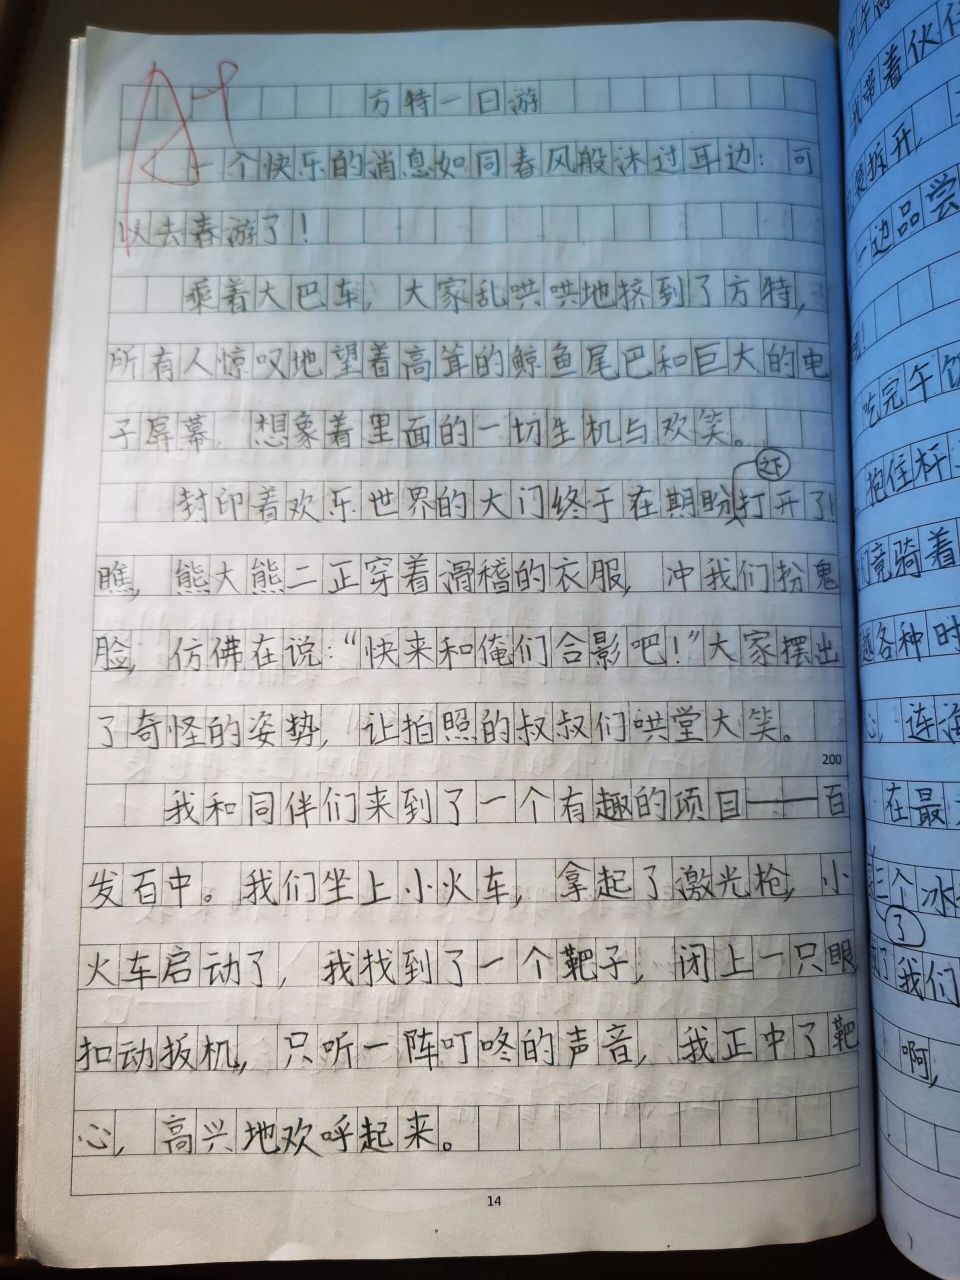 A+
方特一日游
一个快乐的消息如同春风般沐过耳边：可
以去春游了！
乘着大巴车，大家乱哄哄地挤到了方特，
所有人惊叹地望着高耸的鲸鱼尾巴和巨大的电
子屏幕，想象着里面的一切生机与欢笑。
封印着欢乐世界的大门终于在期盼打开了！
瞧，熊大熊二正穿着滑稽的衣服，冲我们扮鬼
脸，仿佛在说：“快来和俺们合影吧！”大家摆出
了奇怪的姿势，让拍照的叔叔们哄堂大笑。
200
我和同伴们来到了一个有趣的项目——百
发百中。我们坐上小火车，拿起了激光枪，小
火车启动了，我找到了一个靶子，闭上一只眼，
扣动扳机，只听一阵叮咚的声音，我正中了靶
心，高兴地欢呼起来。
14
我带着伙伴
装拆开，
一边品尝
吃完午饭
抱住杆
竟骑着
越各种时
心，连海
在最
三个冰
3
了我们
啊，